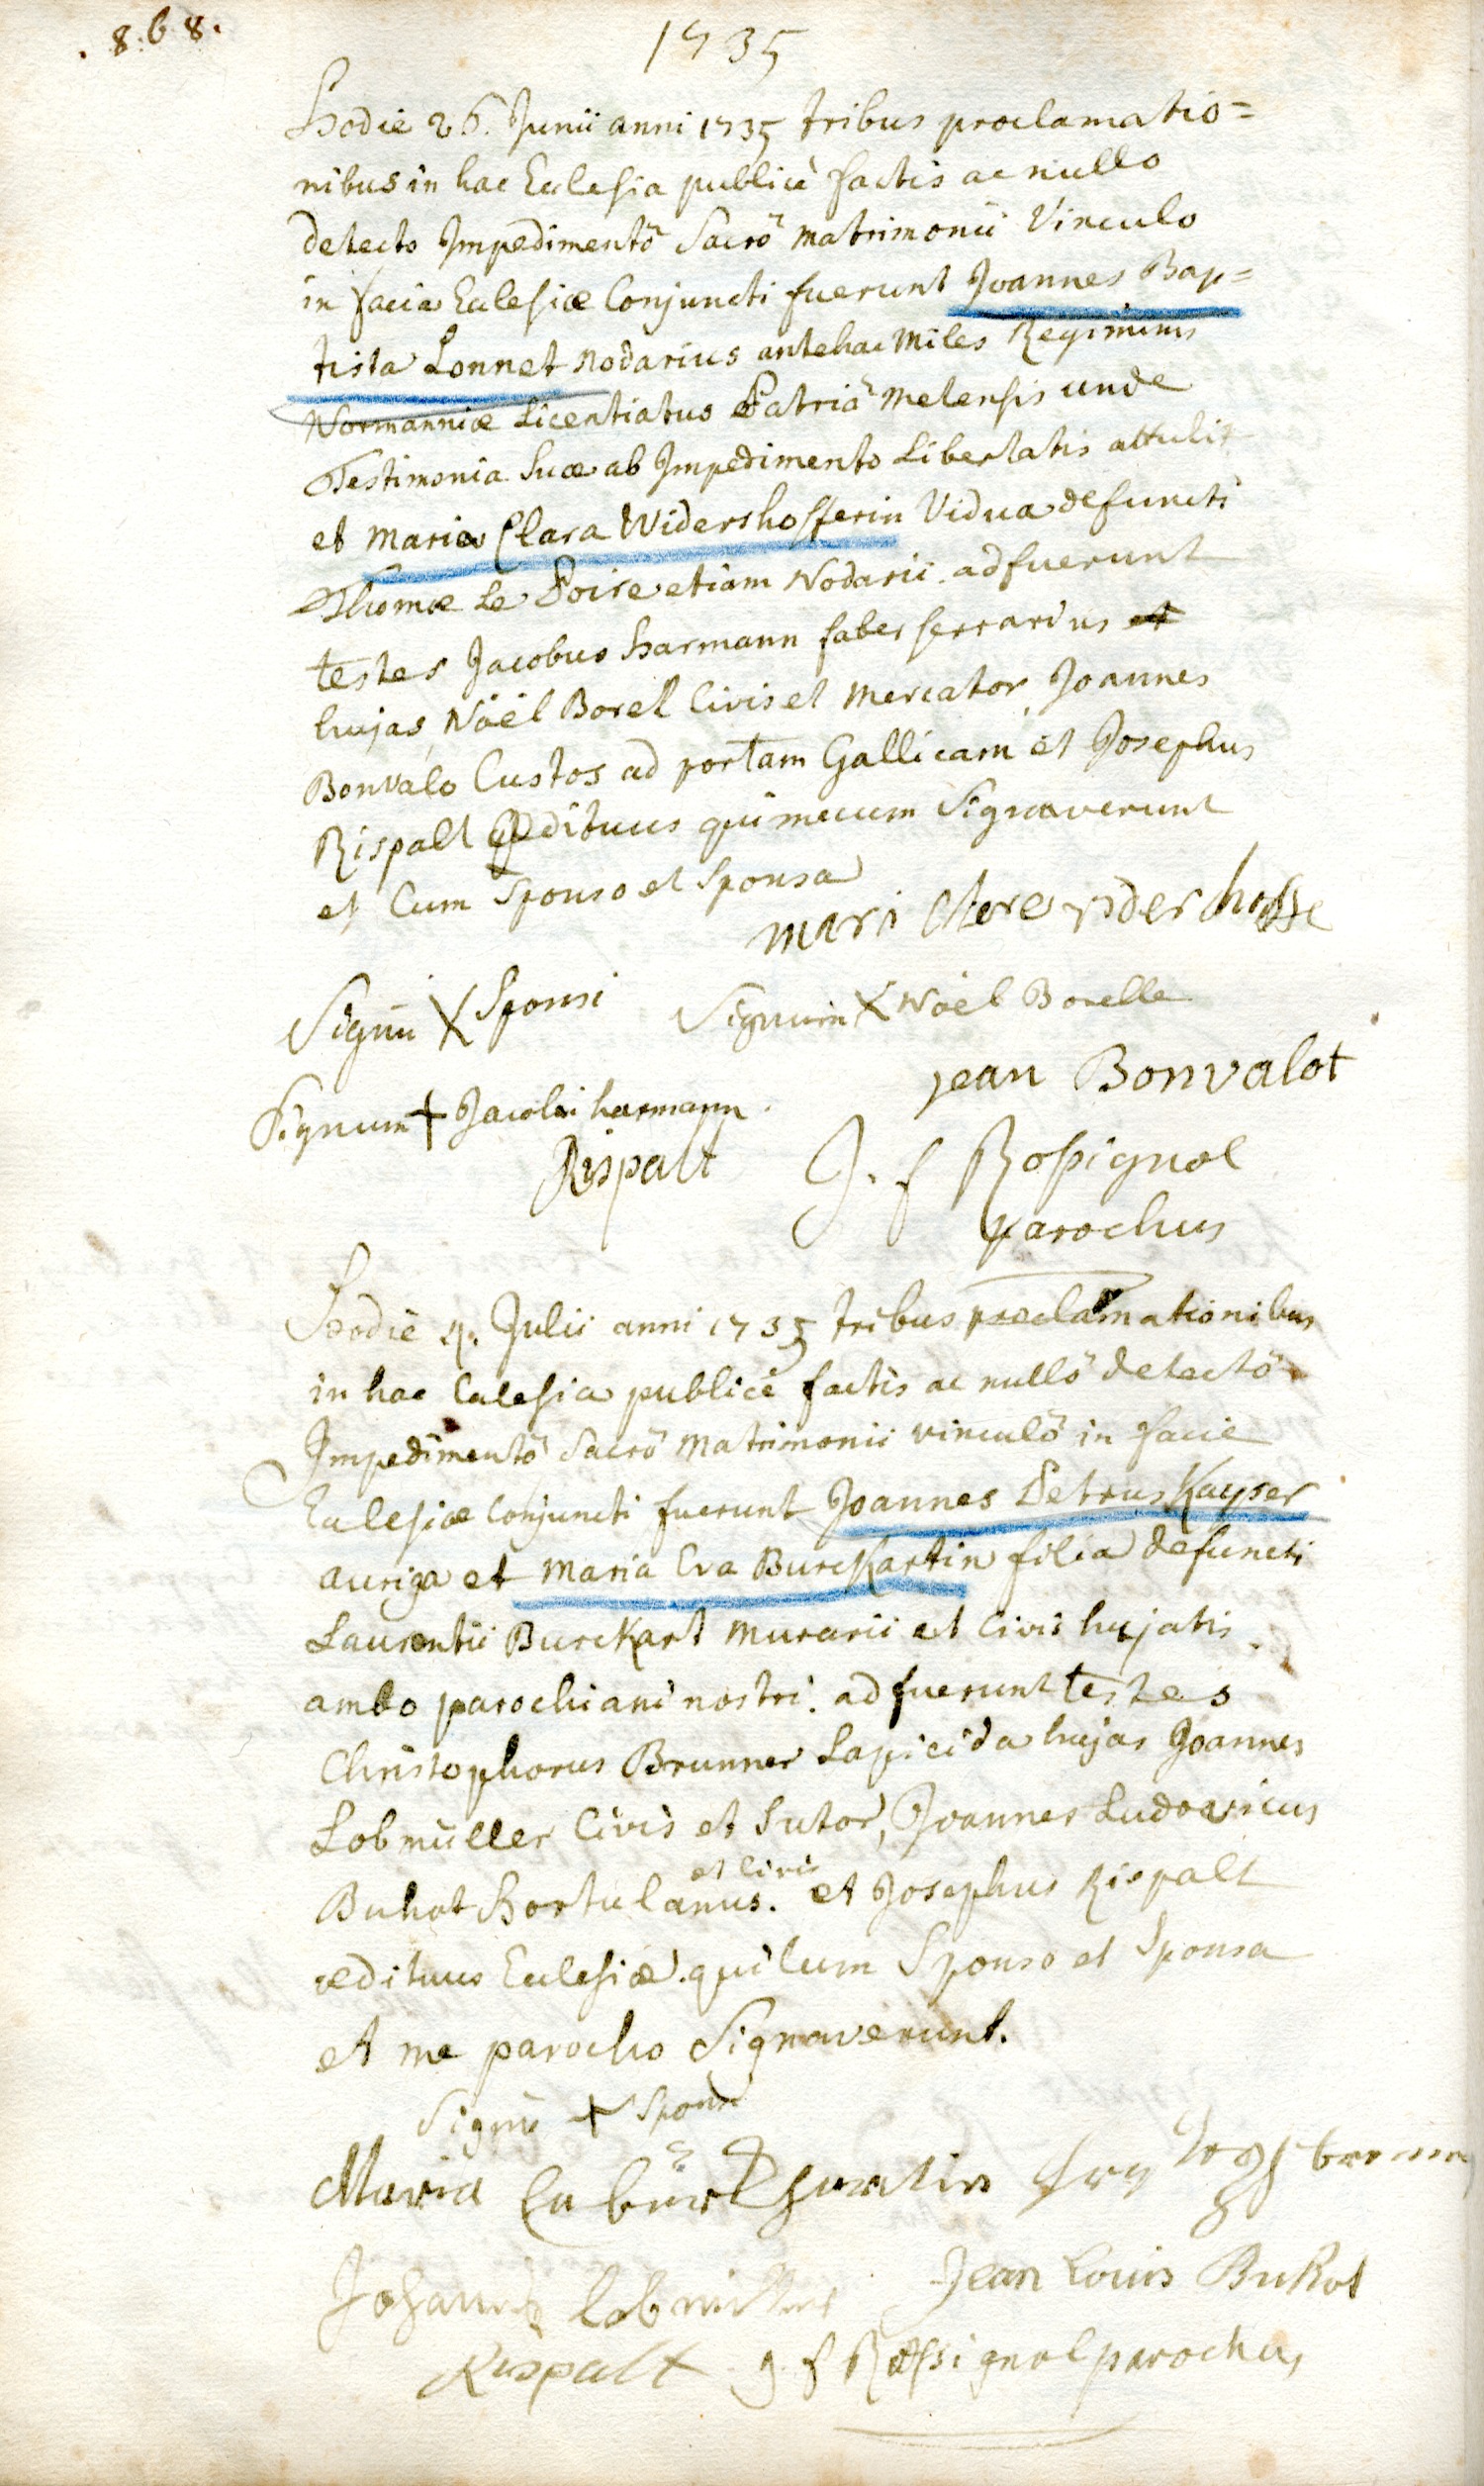 . 8.6 8.
1735
Hodie 26. Junii anni 1735 tribus proclamatio=
nibus in hac Eclesia publicè factis ac nullo
detecto Impedimentô Sacrô matrimonii Vinculo
in facia Eclesiæ Conjuncti fuerunt Joannes Bap=
tista Lonnet Nodarius antehac Miles Regiminis
Normanniæ Licentiatus Patriâ Metensis unde
Testimonia Suæ ab Impedimento Libertatis attulit
et Maria Clara Widershofferin Vidua defuncti
Thomæ Le Poire etiam Nodarii. adfuerunt
testes Jacobus Harmann faber ferrarius et
hujas, Nöel Borel Civis et Mercator, Joannes
Bonvalo Custos ad portam Gallicam et Josephus
Rispalt Ædituus qui mecum Signaverunt
et Cum Sponso et Sponsa
mari clere viderhoffe
Signū X Sponsi Signum X Nöel Borelle
jean Bonvalot
Signum + Jacobi harmann.
Rispalt J. f Rossignol
parochus
Hodie 4. Julii anni 1735 tribus proclamationibus
in hac Eclesia publicè factis ac nullô detectô
Impedimentô Sacrô Matrimonii vinculô in facie
Eclesiæ Conjuncti fuerunt Joannes Petrus Kayser
auriga et Maria Eva Burckartin filia defuncti
Laurentii Burckart Murarii et Civis hujatis
ambo parochiani nostri. adfuerunt testes
Christophorus Brunner Lapicida hujas Joannes
Lobmüller Civis et Sutor, Joannes Ludovicus
et Civis
Buhot Hortulanus. et Josephus Rispalt
ædituus Eclesiæ. qui Cum Sponso et Sponsa
et me parocho Signaverunt.
Signū + Sponsi
Maria
Johannes Lobmiller Jean Louis Buhot
Rispalt j. f Rossignol parochus